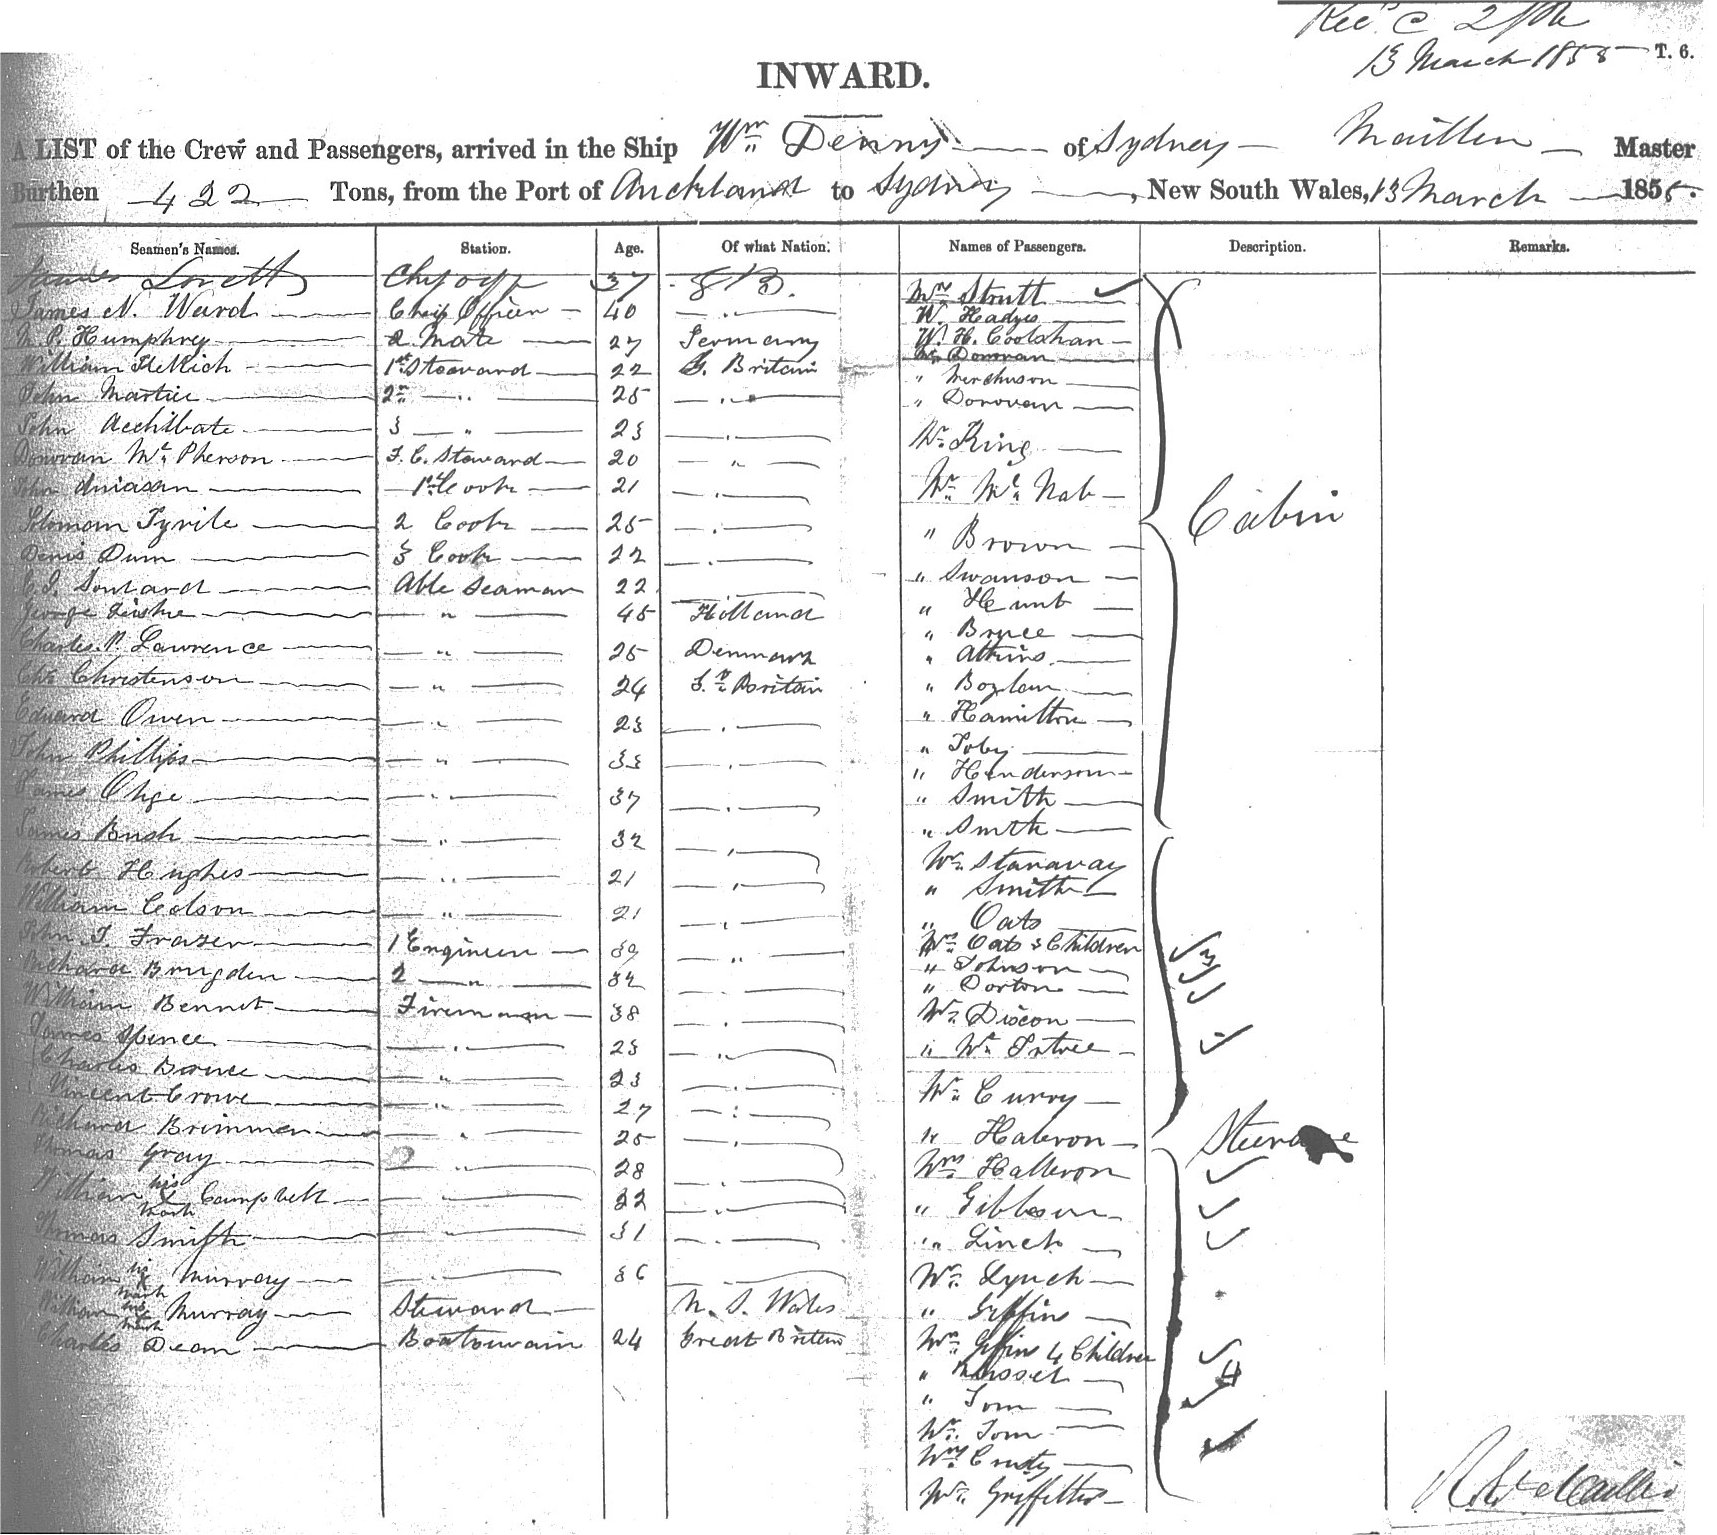 13 March 1855 T. 6.
INWARD.
A LIST of the Crew and Passengers, arrived in the Ship Wm Denny of Sydney Master
Burthen 422 Tons, from the Port of Auckland to Sydney, New South Wales, 13 March 1855.
Seamen's Names. Station. Age. Of what Nation: Names of Passengers. Description. Remarks.
James Lovett 37 G B. Mrs Strutt
James N. Ward Chief Officer 40 " W.
Humphrey 2 Mate 27 Germany W. H.
William 1st Steward 22 G. Britain Mr Donovan
John 2nd " 25 " " Merchuson
John 3 " 23 " " Donovan
Donovan Mc Pherson F. C. Steward 20 " Mr King
John 1st Cook 21 " Mr Mc Nab
Soloman 2 Cook 25 " " Brown
Denis Dum 3 Cook 22 " " Swanson
Able Seaman 22 " Hunt
George " 45 Holland " Bruce
Charles P. Lawrence " 25 Denmark " Atkins
Chr Christenson " 24 Gt Britain "
Edward Owen " 23 " " Hamilton
John Phillips " 33 " " Toby
James " 37 " " Henderson
James Bush " 32 " " Smith
Robert Hughes " 21 " " Smith
William Colson " 21 " Mr Stanaway
John T. Frazer 1 Engineer 39 " " Smith
Richard 2 " 32 " " Oats
William Bennet Fireman 38 " Mrs Oats 3 Children
James Spence " 23 " " Johnson
Charles " 23 " " Dorton
Vincent Crowe " 27 " Mr Discon
Richard Brimmer " 25 " " Mr
Thomas Gray " 28 " Mr Curry
William his x mark Campbell " 22 " "
Thomas Smith " 31 " Mrs
William his x mark Murray " 36 " " Gibbson
William his mark Murray Steward N. S. Wales " Linch
Charles Dean Boatswain 24 Great Britain Mr Lynch
" Griffins
Mrs 4 Children
" Russel
" Tom
Mr. Tom
Mrs
Mr. Griffiths
Cabin
3
Steerage
4